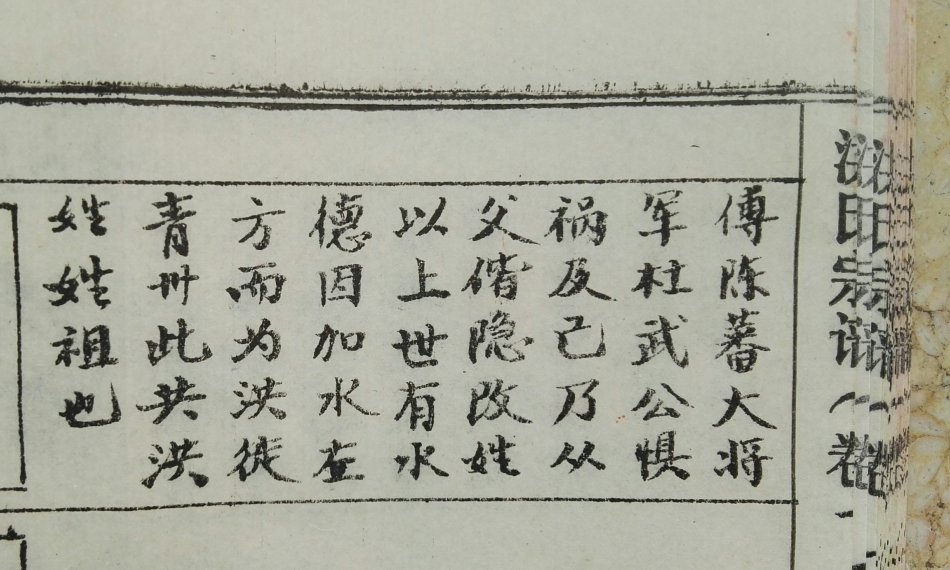 宗谱 卷
傅陈蕃大将
军杜武公惧
祸及己乃从
父偕隐改姓
以上世有水
德因加水左
方而为洪徙
青州此共洪
姓姓祖也